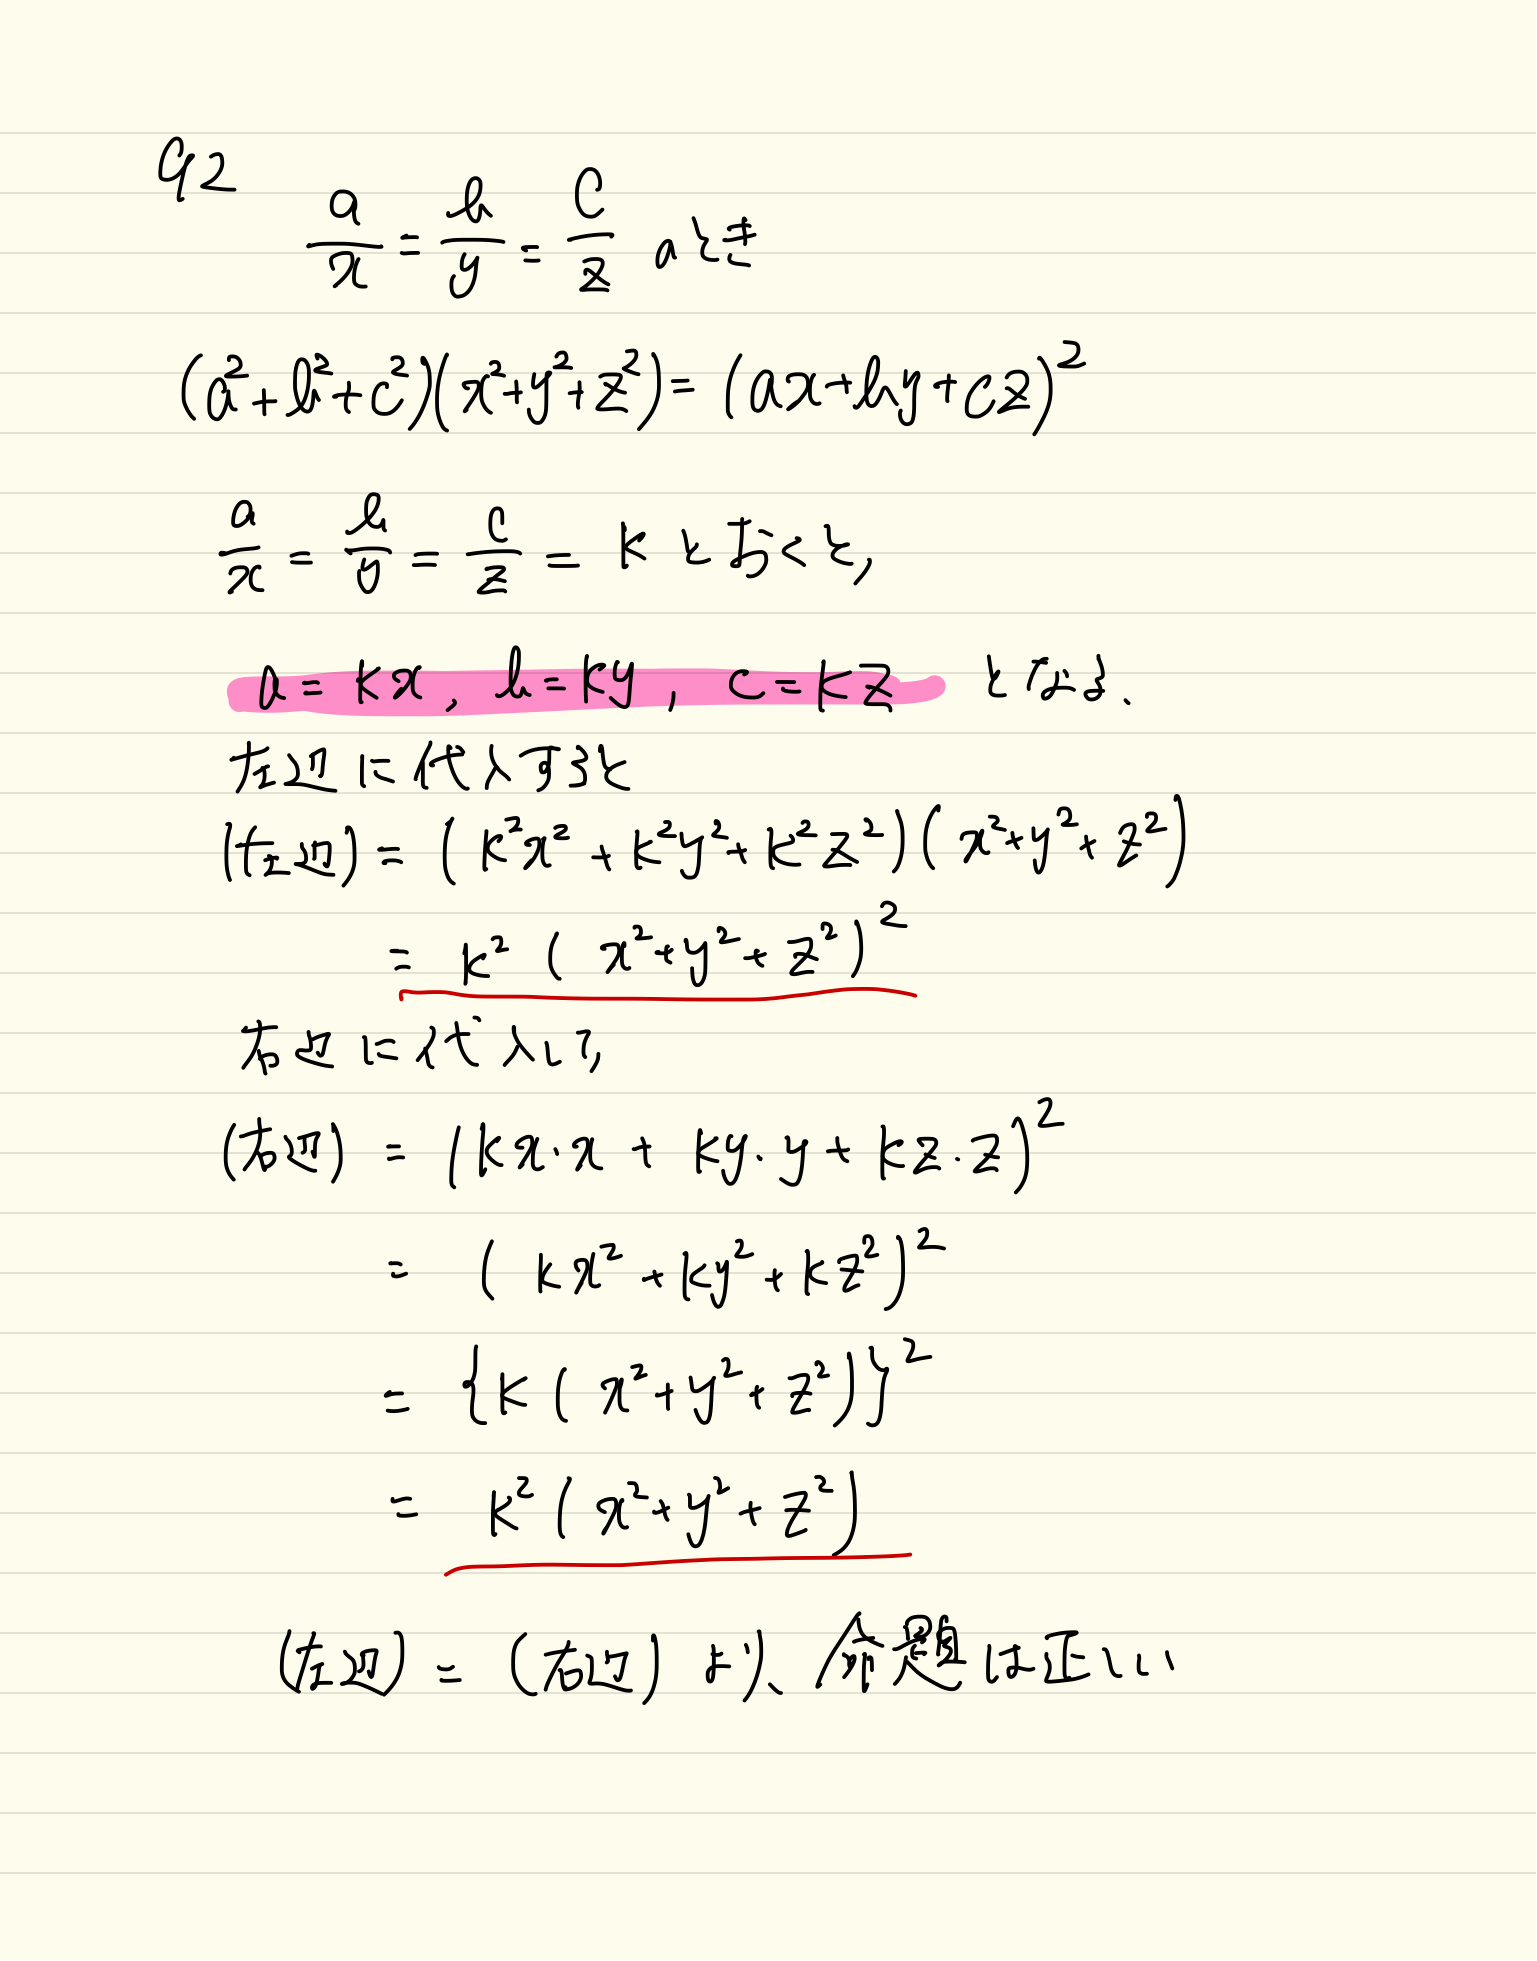 92
a/x = b/y = c/z のとき
(a²+b²+c²)(x²+y²+z²)=(ax+by+cz)²
a/x = b/y = c/z = k とおくと,
a = kx, b=ky, c=kz となる.
左辺に代入すると
(左辺) = (k²x² + k²y² + k²z²)(x²+y²+z²)
= k² (x²+y²+z²)²
右辺に代入して,
(右辺) = (kx·x + ky·y + kz·z)²
= (kx²+ky²+kz²)²
= {k(x²+y²+z²)}²
= k²(x²+y²+z²)
(左辺) = (右辺) より、命題は正しい